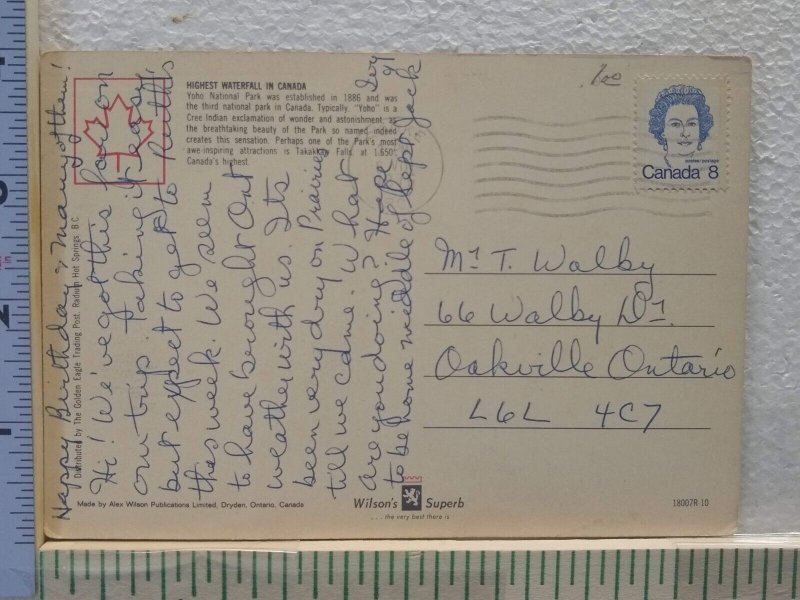 HIGHEST WATERFALL IN CANADA
Yoho National Park was established in 1886 and was
the third national park in Canada. Typically, "Yoho" is a
Cree Indian exclamation of wonder and astonishment, as
the breathtaking beauty of the Park so named indeed
creates this sensation. Perhaps one of the Park's most
awe-inspiring attractions is Takakkaw Falls, at 1,650'
Canada's highest.
Happy Birthday & many of them!
Hi! We've got this far on
our trip. Taking it easy
but expect to get to Ruth's
this week. We seem
to have brought Ont
weather with us. Its
been very dry on Prairies
till we came. What
are you doing? Hope
to be home middle of Sept.
Joy
&
Jack
Distributed by The Golden Eagle Trading Post, Radium Hot Springs B.C.
Made by Alex Wilson Publications Limited, Dryden, Ontario, Canada
Wilson's Superb
...the very best there is
18007R-10
postes/postage
Canada 8
Mr T. Walby
66 Walby Dr.
Oakville Ontario
L6L 4C7